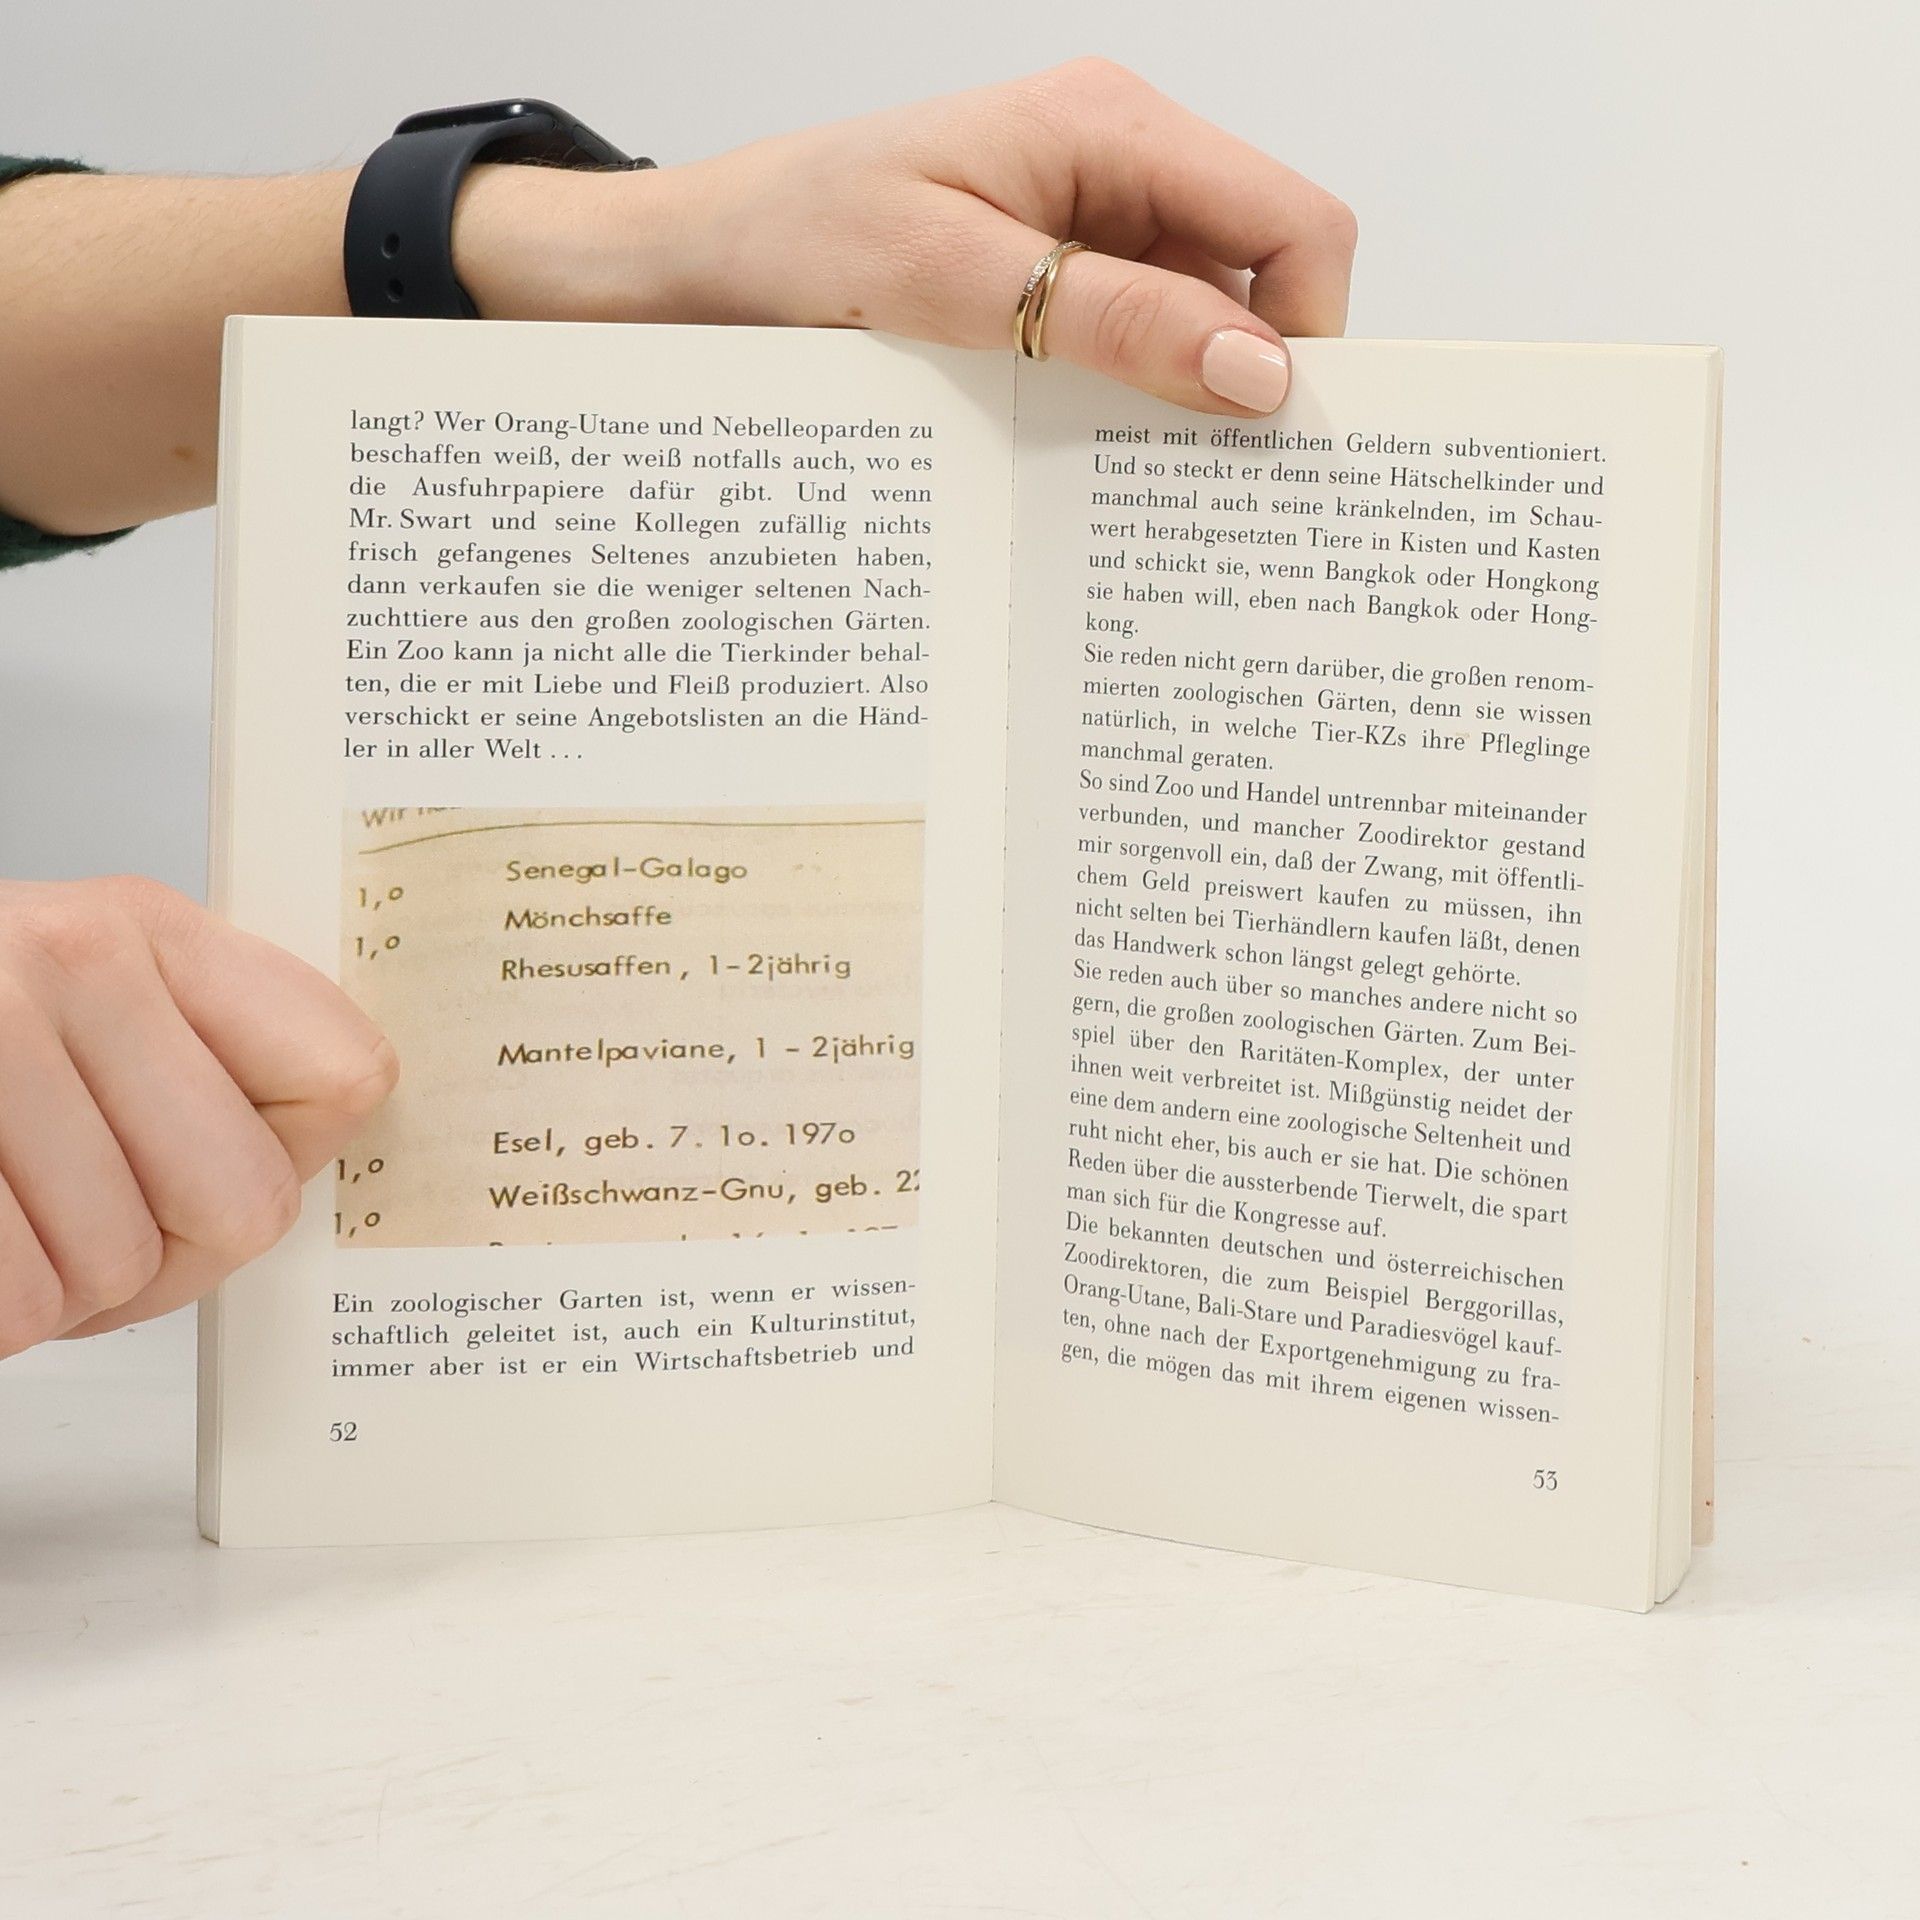 langt? Wer Orang-Utane und Nebelleoparden zu
beschaffen weiß, der weiß notfalls auch, wo es
die Ausfuhrpapiere dafür gibt. Und wenn
Mr. Swart und seine Kollegen zufällig nichts
frisch gefangenes Seltenes anzubieten haben,
dann verkaufen sie die weniger seltenen Nach-
zuchttiere aus den großen zoologischen Gärten.
Ein Zoo kann ja nicht alle die Tierkinder behal-
ten, die er mit Liebe und Fleiß produziert. Also
verschickt er seine Angebotslisten an die Händ-
ler in aller Welt ...
Wir
Senegal-Galago
1,o Mönchsaffe
1,o Rhesusaffen, 1-2jährig
Mantelpaviane, 1 - 2jährig
Esel, geb. 7. 1o. 197o
1,o Weißschwanz-Gnu, geb. 22
1,o
Ein zoologischer Garten ist, wenn er wissen-
schaftlich geleitet ist, auch ein Kulturinstitut,
immer aber ist er ein Wirtschaftsbetrieb und
52
meist mit öffentlichen Geldern subventioniert.
Und so steckt er denn seine Hätschelkinder und
manchmal auch seine kränkelnden, im Schau-
wert herabgesetzten Tiere in Kisten und Kasten
und schickt sie, wenn Bangkok oder Hongkong
sie haben will, eben nach Bangkok oder Hong-
kong.
Sie reden nicht gern darüber, die großen renom-
mierten zoologischen Gärten, denn sie wissen
natürlich, in welche Tier-KZs ihre Pfleglinge
manchmal geraten.
So sind Zoo und Handel untrennbar miteinander
verbunden, und mancher Zoodirektor gestand
mir sorgenvoll ein, daß der Zwang, mit öffentli-
chem Geld preiswert kaufen zu müssen, ihn
nicht selten bei Tierhändlern kaufen läßt, denen
das Handwerk schon längst gelegt gehörte.
Sie reden auch über so manches andere nicht so
gern, die großen zoologischen Gärten. Zum Bei-
spiel über den Raritäten-Komplex, der unter
ihnen weit verbreitet ist. Mißgünstig neidet der
eine dem andern eine zoologische Seltenheit und
ruht nicht eher, bis auch er sie hat. Die schönen
Reden über die aussterbende Tierwelt, die spart
man sich für die Kongresse auf.
Die bekannten deutschen und österreichischen
Zoodirektoren, die zum Beispiel Berggorillas,
Orang-Utane, Bali-Stare und Paradiesvögel kauf-
ten, ohne nach der Exportgenehmigung zu fra-
gen, die mögen das mit ihrem eigenen wissen-
53